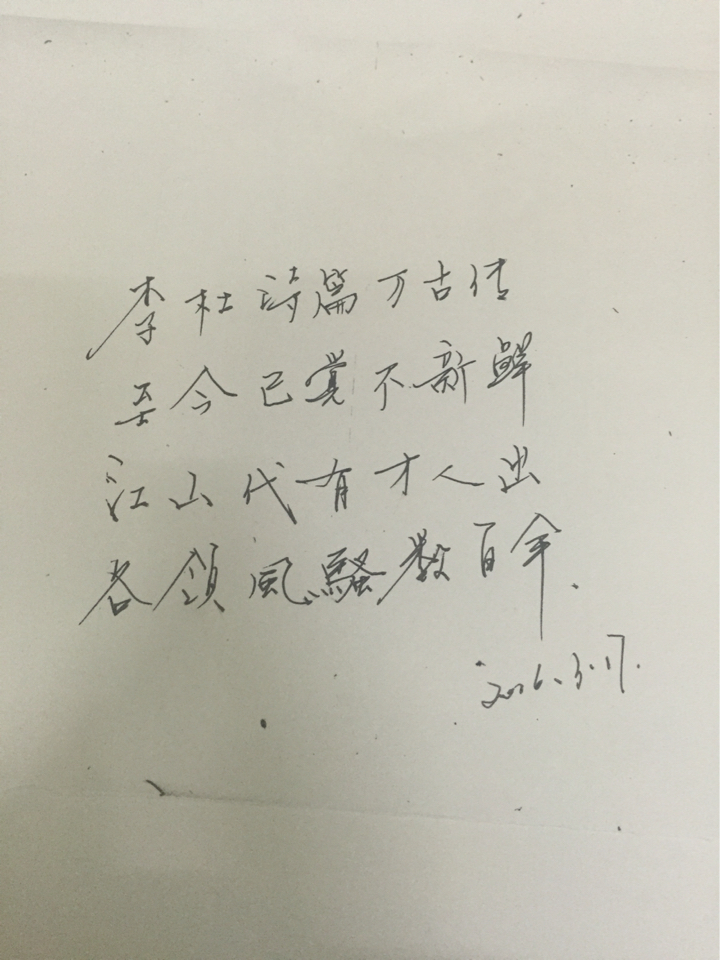 李杜诗篇万古传
至今已觉不新鲜
江山代有才人出
各领風騷数百年.
2016.3.17.